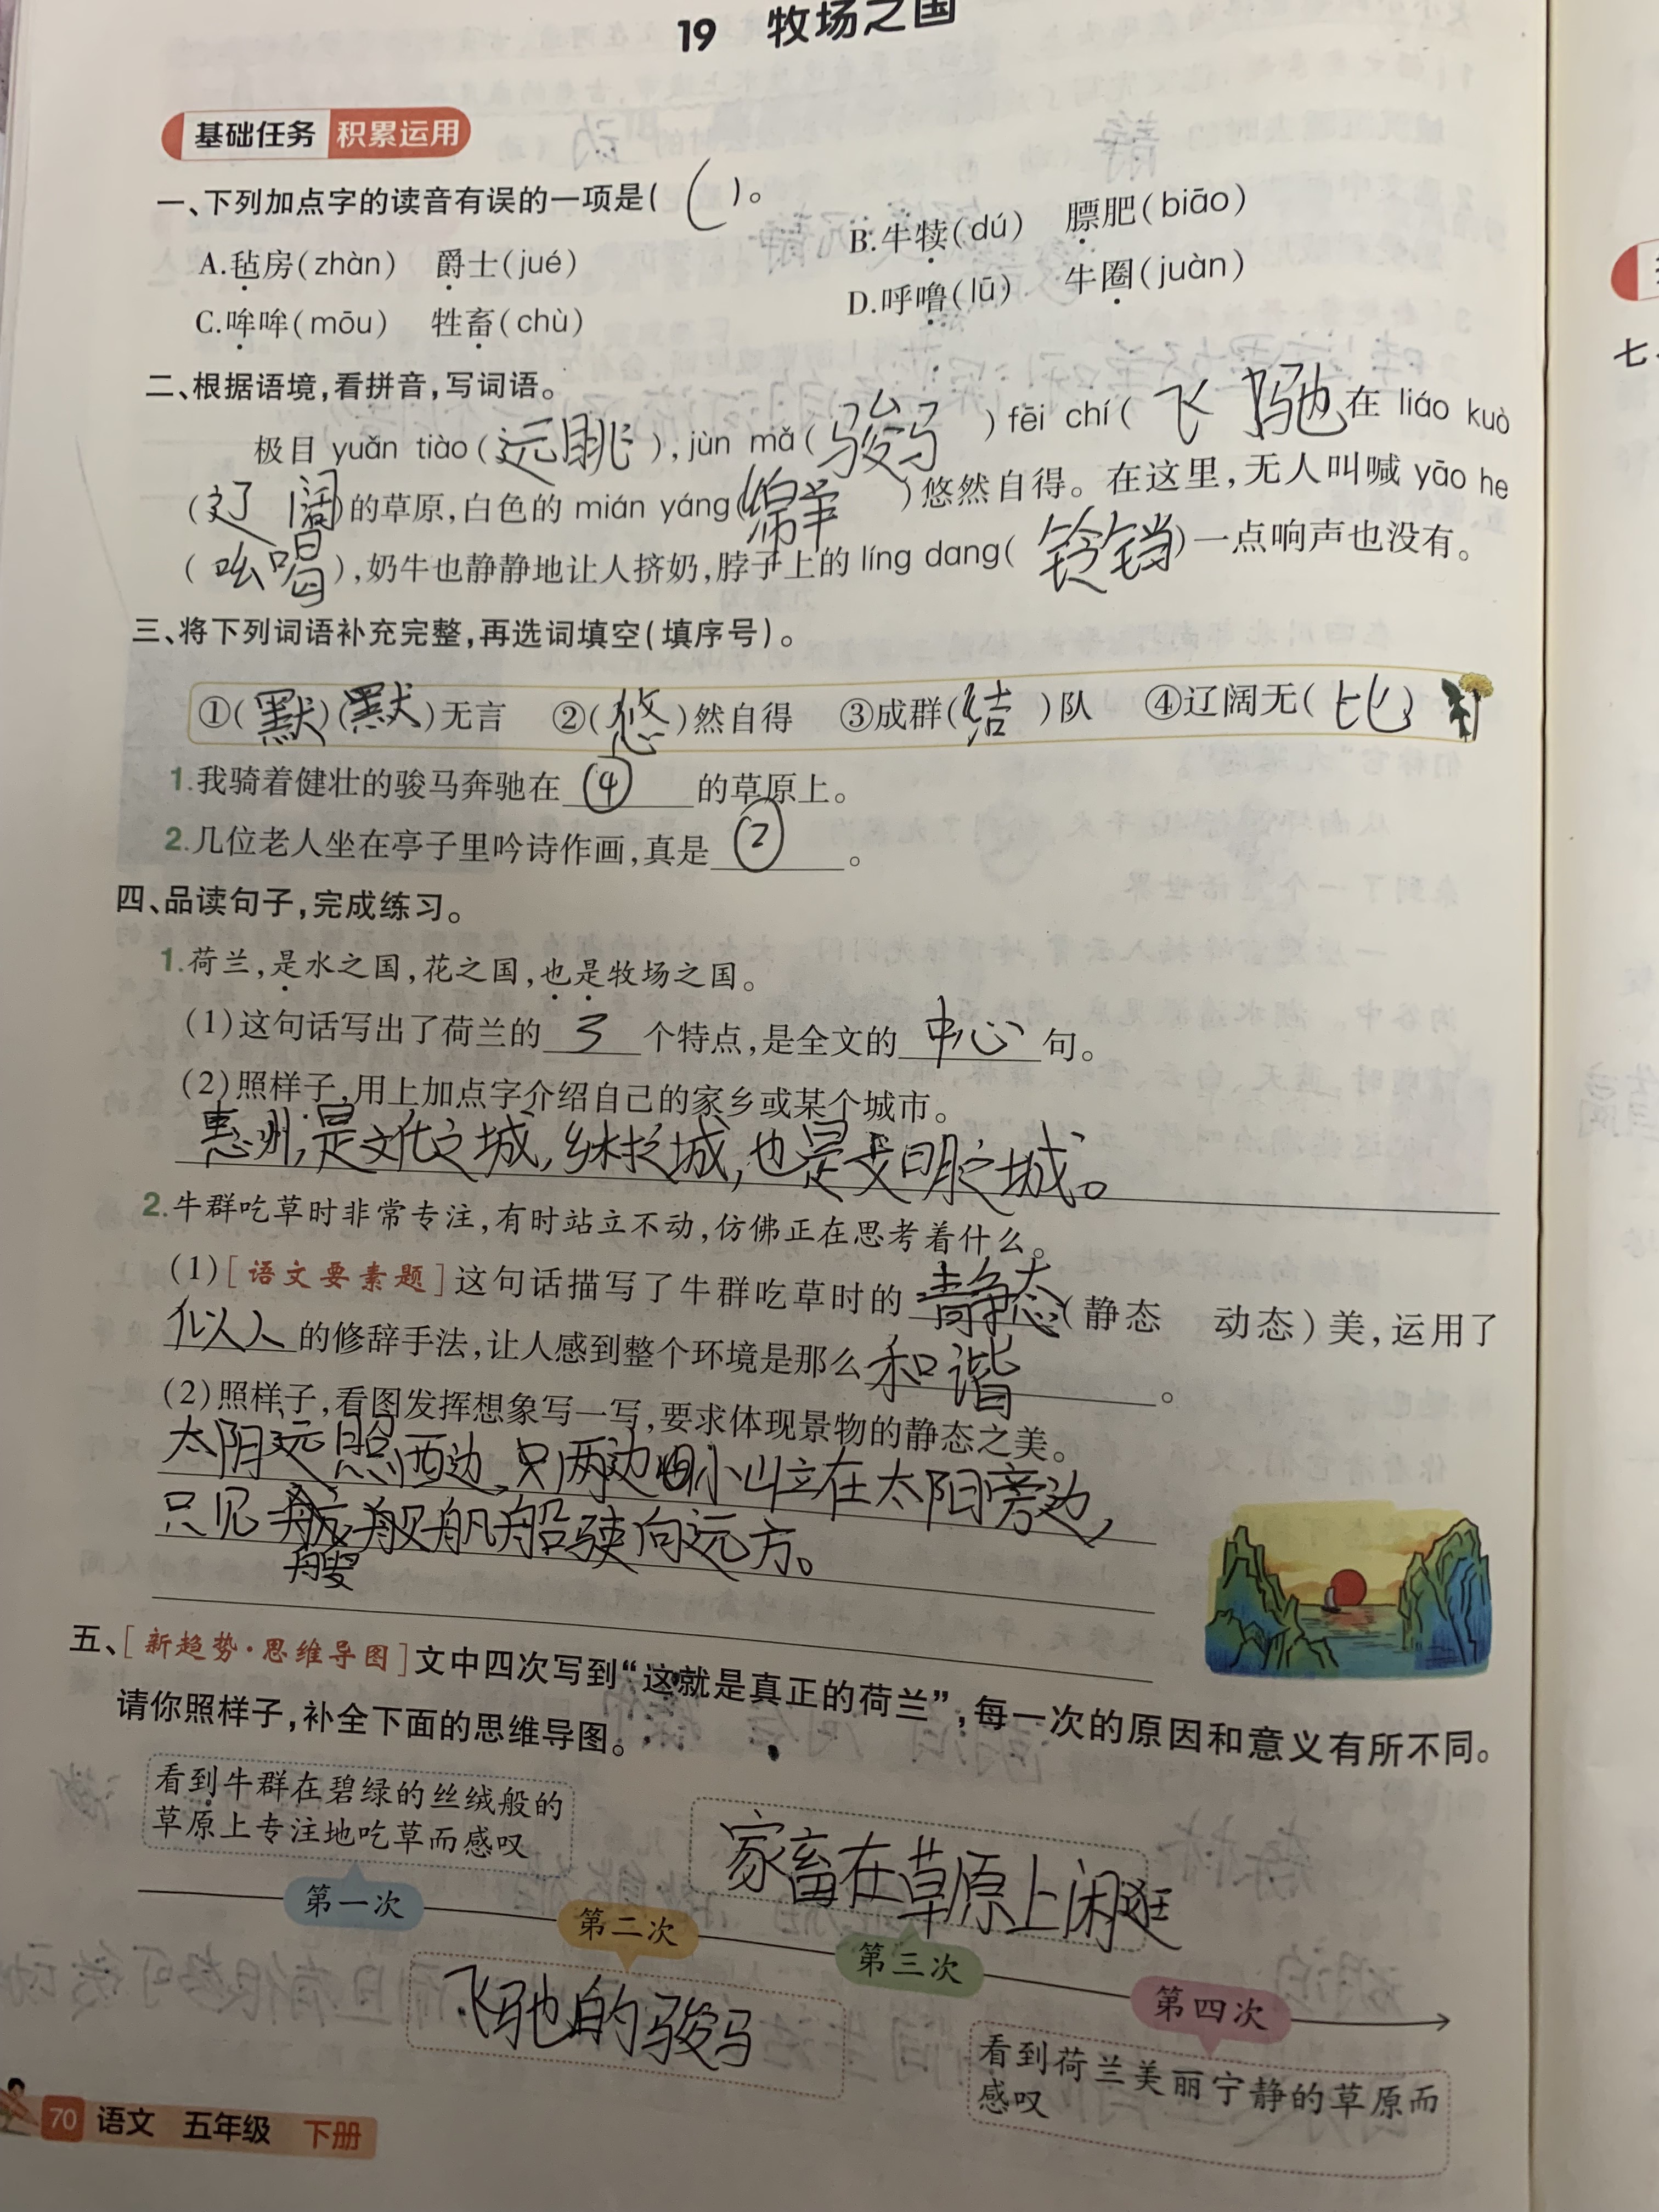 19 牧场之国
基础任务 积累运用
一、下列加点字的读音有误的一项是( C )。
A.毡房(zhàn) 爵士(jué)
B.牛犊(dú) 膘肥(biāo)
C.哞哞(mōu) 牲畜(chù)
D.呼噜(lū) 牛圈(juàn)
二、根据语境,看拼音,写词语。
极目 yuǎn tiào(远眺),jùn mǎ(骏马)fēi chí(飞驰在 liáo kuò
(辽阔)的草原,白色的 mián yáng(绵羊)悠然自得。在这里,无人叫喊 yāo he
(吆喝),奶牛也静静地让人挤奶,脖子上的 líng dang(铃铛)一点响声也没有。
三、将下列词语补充完整,再选词填空(填序号)。
①(默)(默)无言 ②(悠)然自得 ③成群(结)队 ④辽阔无(比)
1.我骑着健壮的骏马奔驰在④的草原上。
2.几位老人坐在亭子里吟诗作画,真是②。
四、品读句子,完成练习。
1.荷兰,是水之国,花之国,也是牧场之国。
(1)这句话写出了荷兰的3个特点,是全文的中心句。
(2)照样子,用上加点字介绍自己的家乡或某个城市。
惠州,是文化之城,乡村之城,也是文明之城。
2.牛群吃草时非常专注,有时站立不动,仿佛正在思考着什么。
(1)[语文要素题]这句话描写了牛群吃草时的静态(静态 动态)美,运用了
似人的修辞手法,让人感到整个环境是那么和谐。
(2)照样子,看图发挥想象写一写,要求体现景物的静态之美。
太阳远照西边,只两边小山立在太阳旁边,
只见 艘帆船驶向远方。
五、[新趋势·思维导图]文中四次写到“这就是真正的荷兰”,每一次的原因和意义有所不同。
请你照样子,补全下面的思维导图。
看到牛群在碧绿的丝绒般的
草原上专注地吃草而感叹
家畜在草原上闲逛
第一次
第二次
第三次
第四次
飞驰的骏马
看到荷兰美丽宁静的草原而
感叹
70 语文 五年级 下册
七、